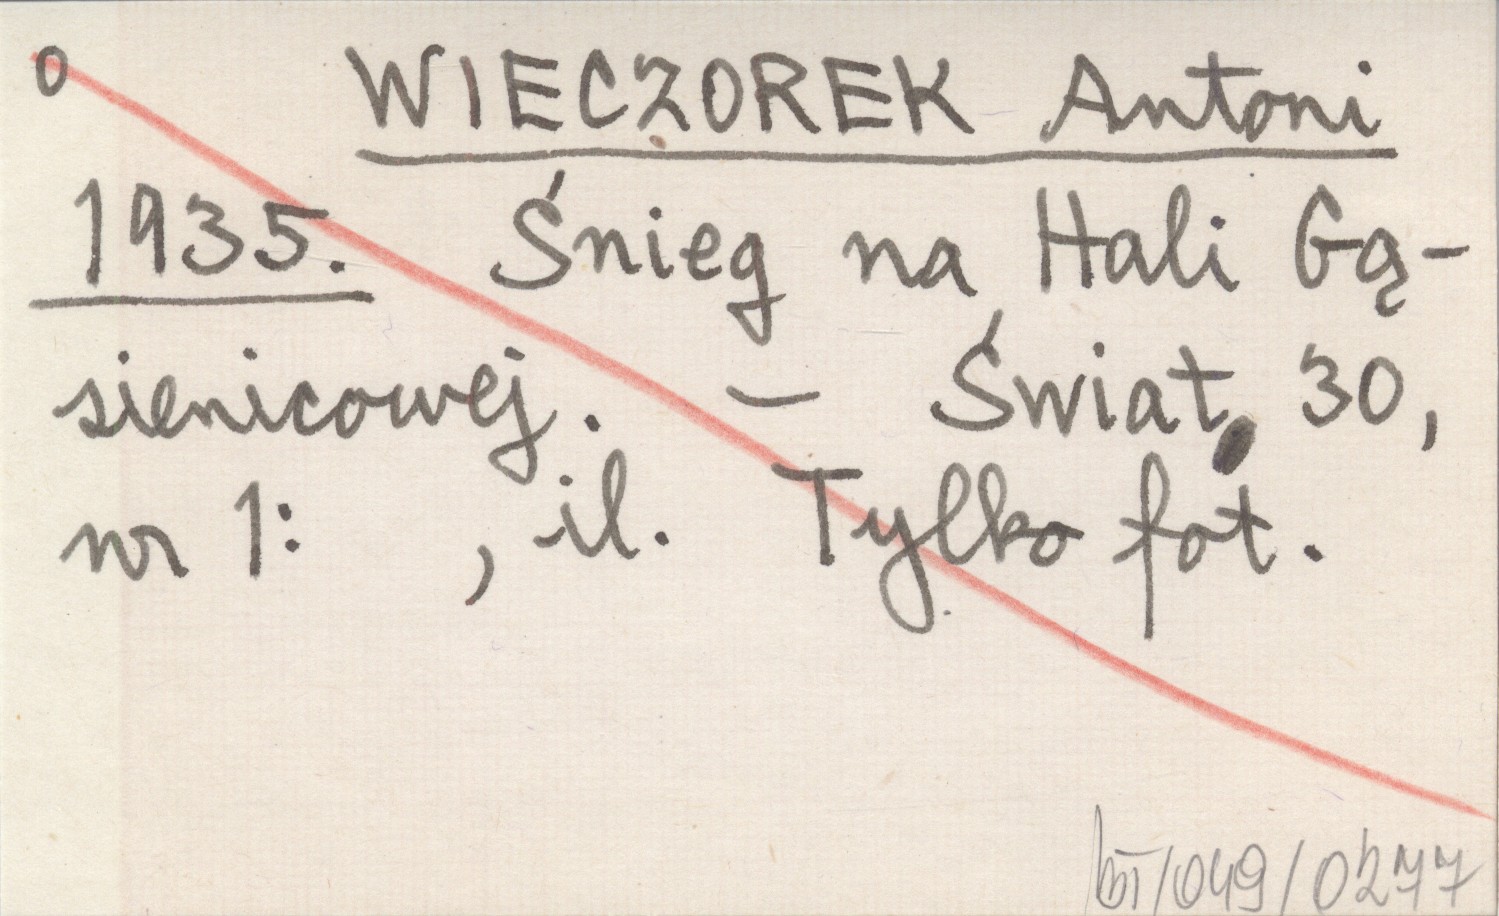 0 WIECZOREK Antoni
1935. Śnieg na Hali Gą-
sienicowej. - Świat, 30,
nr 1: , il. Tylko fot.
/049/0277